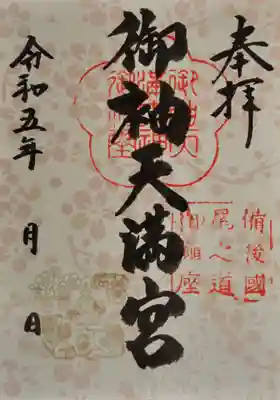 奉拝
備後國
尾之道
御袖天満宮
令和五年
月
日